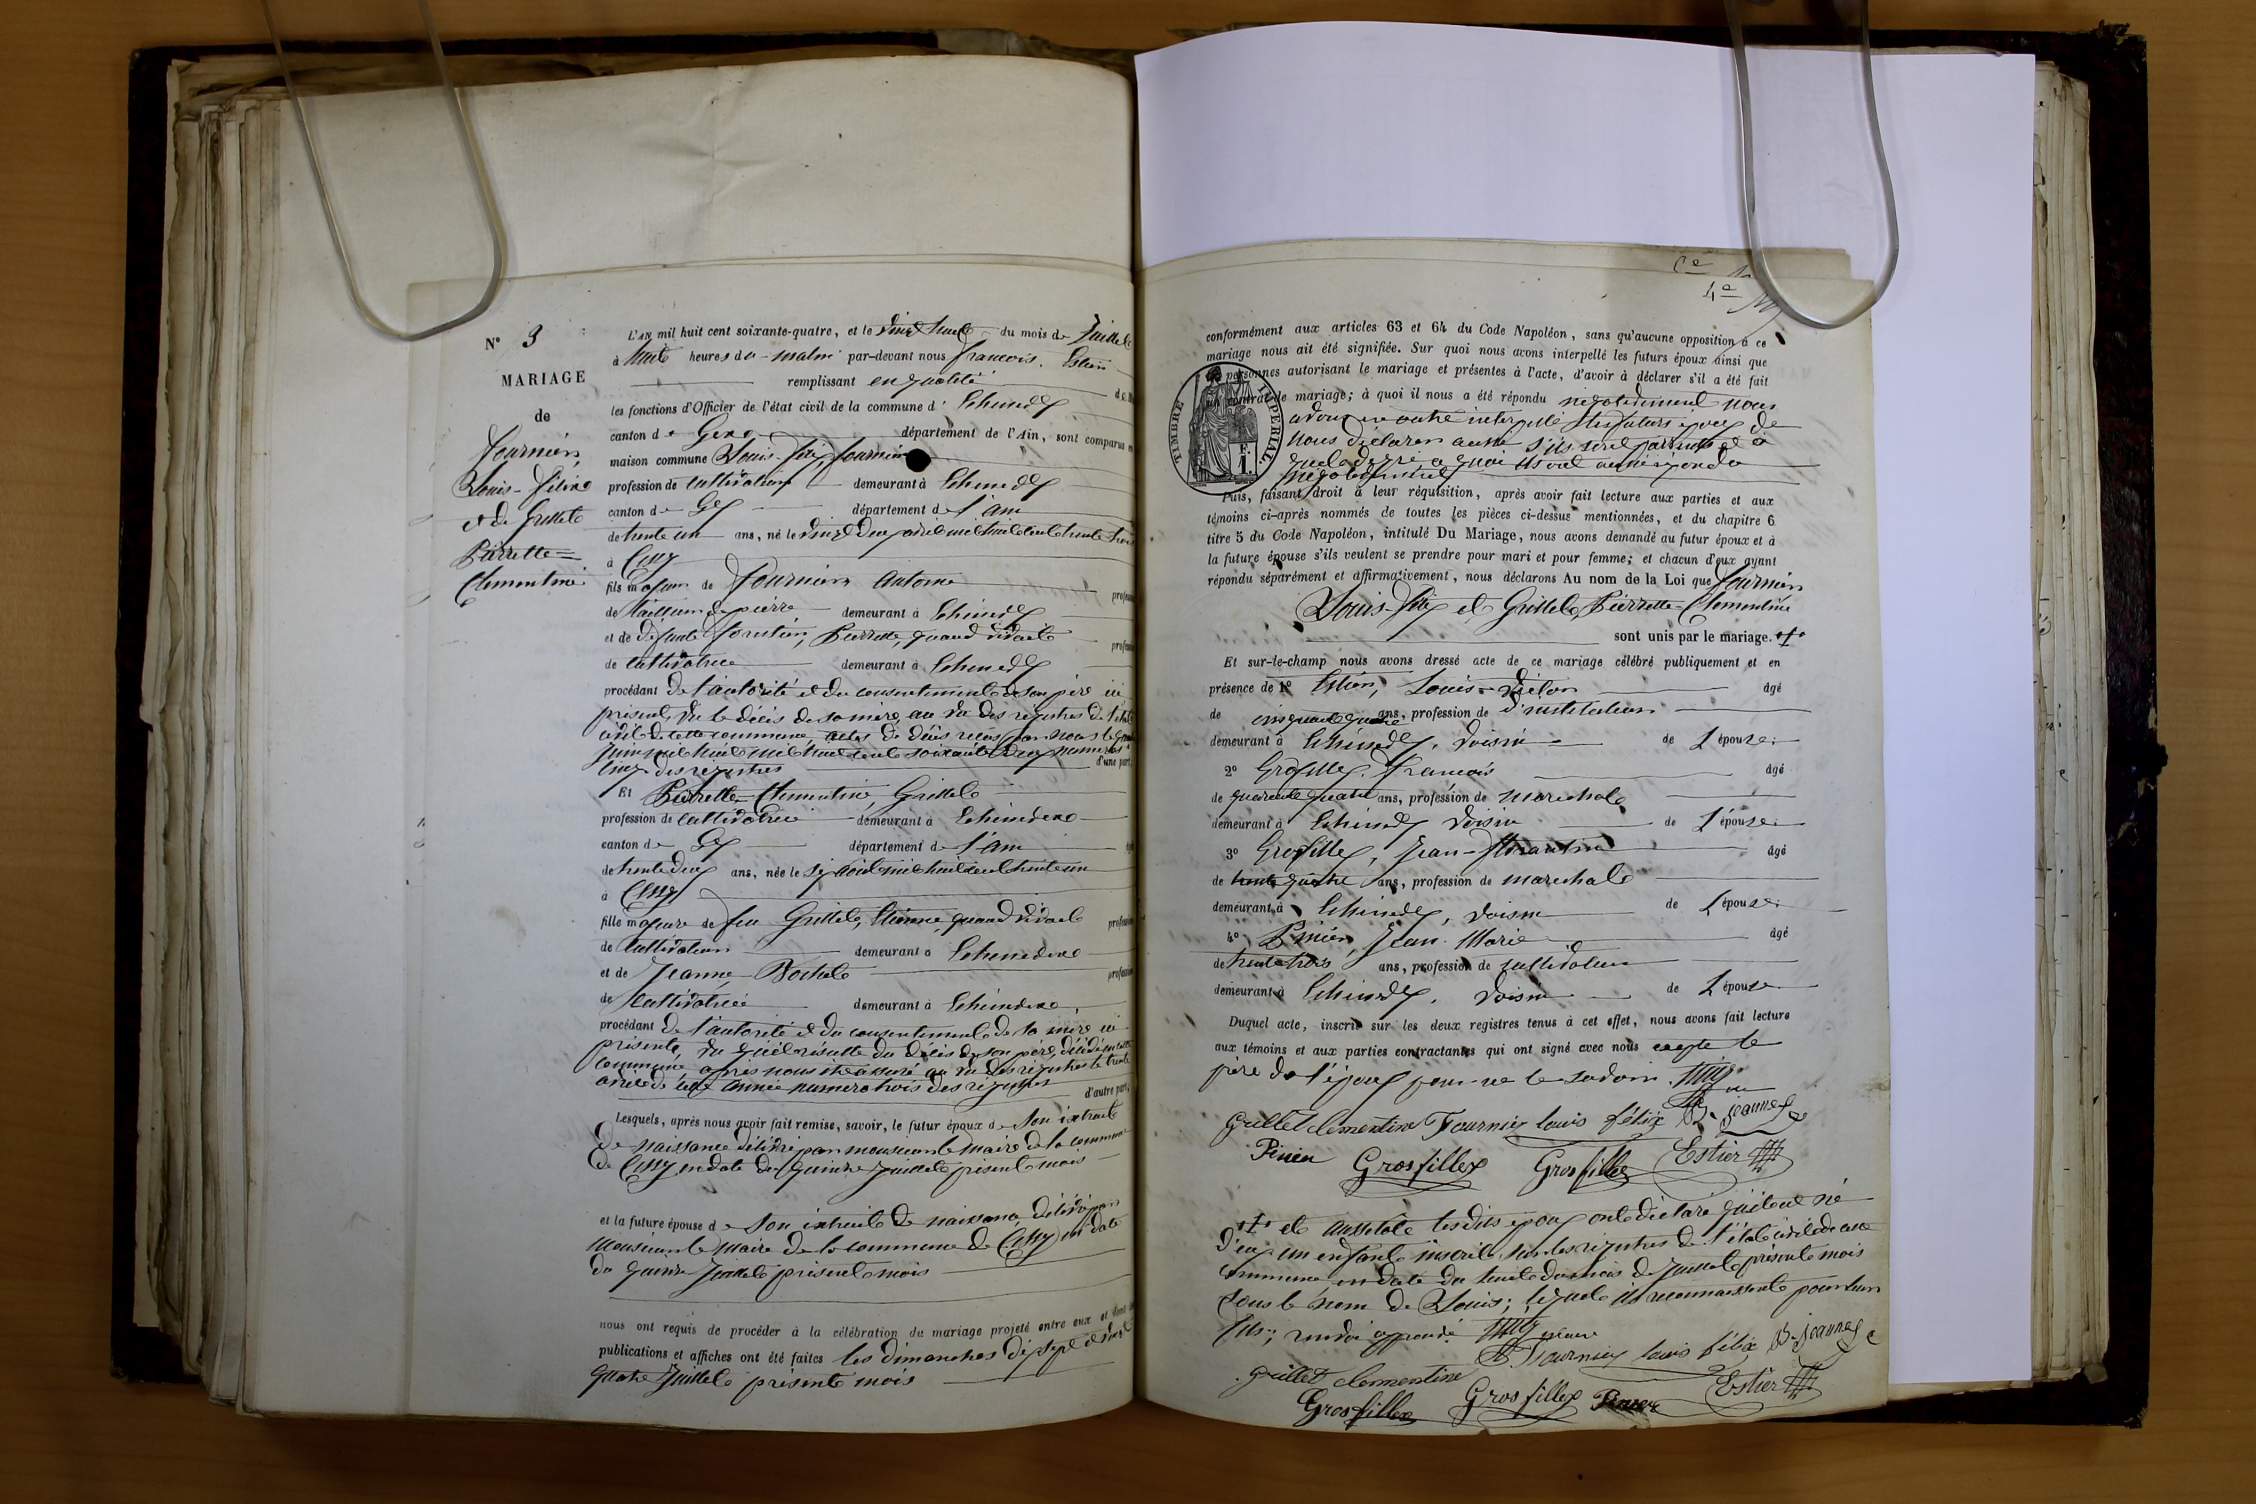 N° 3
MARIAGE
de
Fournier,
Louis-Félix
et de Grillet
Pierrette=
Clémentine.
L'AN mil huit cent soixante-quatre, et le vingt huit du mois de Juillet
à huit heures du matin par-devant nous François Estier
remplissant en qualité
les fonctions d'Officier de l'état civil de la commune d' Echenevex
canton de Gex département de l'Ain, sont comparus en
maison commune Louis Félix Fournier
profession de cultivateur demeurant à Echenevex
canton de Gex département de l'ain
de trente un ans, né le vingt deux avril mil huit cent trente trois
à Cessy
fils majeur de Fournier Antoine
de tailleur de pierre demeurant à Echenevex
et de défunte Pierrette, quand vivait
de cultivatrice demeurant à Echenevex
procédant de l'autorité et du consentement de son père ici
présent, vu le décès de sa mère, au vu des régistres de l'état
civil de cette commune, actes de décès reçus par nous le
juin mil huit mil huit cent soixante deux numéros
cinq des régistres d'une part,
Et Pierrette-Clémentine, Grillet
profession de cultivatrice demeurant à Echenevex
canton de Gex département de l'ain
de trente deux ans, née le six août mil huit cent trente un
à Cessy
fille majeure de feu Grillet, Etienne, quand vivait
de cultivateur demeurant à Echenevex
et de Jeanne Bochet
de cultivatrice demeurant à Echenevex
procédant de l'autorité et du consentement de sa mère ici
présente, vu qu'il résulte du décès de son père, décédé en cette
commune, après nous être assuré au vu des régistres le trente
avril de cette année numéro trois des régistres
d'autre part,
Lesquels, après nous avoir fait remise, savoir, le futur époux de son extrait
de naissance délivré par monsieur le maire de la commune
de Cessy en date du quinze Juillet présent mois
et la future épouse de son extrait de naissance, délivré par
Monsieur le Maire de la commune de Cessy en date
du quinze Juillet présent mois
nous ont requis de procéder à la célébration du mariage projeté entre eux et dont
publications et affiches ont été faites les dimanches dix sept et vingt
quatre Juillet présent mois
conformément aux articles 63 et 64 du Code Napoléon, sans qu'aucune opposition à ce
mariage nous ait été signifiée. Sur quoi nous avons interpellé les futurs époux ainsi que
personnes autorisant le mariage et présentes à l'acte, d'avoir à déclarer s'il a été fait
contrat de mariage; à quoi il nous a été répondu négativement nous
avons en outre interpellé les futurs époux de
nous déclarer aussi s'ils sont parents et à
quel degré, à quoi ils ont aussi répondu
négativement
TIMBRE IMPERIAL
Puis, faisant droit à leur réquisition, après avoir fait lecture aux parties et aux
témoins ci-après nommés de toutes les pièces ci-dessus mentionnées, et du chapitre 6
titre 5 du Code Napoléon, intitulé Du Mariage, nous avons demandé au futur époux et à
la future épouse s'ils veulent se prendre pour mari et pour femme; et chacun d'eux ayant
répondu séparément et affirmativement, nous déclarons Au nom de la Loi que Fournier
Louis-Félix et Grillet, Pierrette-Clémentine
sont unis par le mariage.
Et sur-le-champ nous avons dressé acte de ce mariage célébré publiquement et en
présence de 1° Estier, Louis-Victor âgé
de cinquante quatre ans, profession de d'instituteur
demeurant à Echenevex, voisin de l'épouse
2° Grosfillex, François âgé
de quarante quatre ans, profession de maréchal
demeurant à Echenevex voisin de l'épouse
3° Grosfillex, Jean-Marin âgé
de trente quatre ans, profession de maréchal
demeurant à Echenevex, voisin de l'épouse
4° Pinier, Jean-Marie âgé
de trente trois ans, profession de cultivateur
demeurant à Echenevex, voisin de l'épouse
Duquel acte, inscrit sur les deux registres tenus à cet effet, nous avons fait lecture
aux témoins et aux parties contractantes qui ont signé avec nous excepté le
père de l'époux pour ne le savoir.
Grillet clementine Fournier louis félix B. jeanne
Pinier Grosfillex Grosfillex Estier
et aussitôt lesdits époux ont déclaré qu'il est né
d'eux un enfant inscrit sur les régistres de l'état civil de cette
commune en date du huit du mois de Juillet présent mois
sous le nom de Louis; lequel ils reconnaissent pour leur
fils; renvoi approuvé
Fournier louis félix B. jeanne
grillet clementine Estier
Grosfillex Grosfillex Pinier